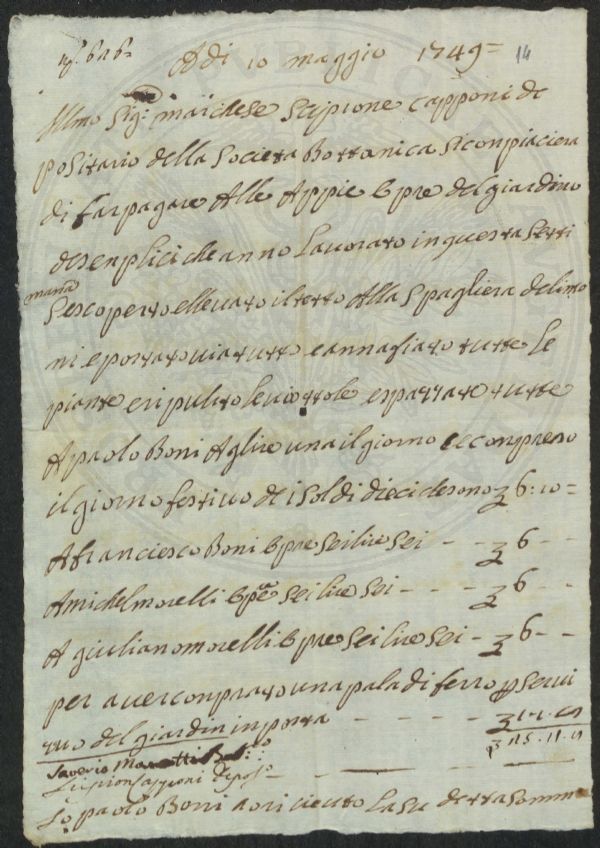 Adi 10 maggio 1749= 14
Illmo Sig: marchese Scipione Capponi de
positario della Societa Bottanica si conpiacera
di far pagare Alle Appie opre del giardino
de senplici che anno Lavorato in questa Setti
mana
Sescoperto ellevato il tetto Alla Spagliera de limo
ni e portato via tutto e annafiato tutte le
piante e ripulito le viottole e spazzate tutte
A paolo Boni A lire una il giorno e conpreso
il giorno festivo de i Soldi dieci che sono 6:10=
A franciesco Boni opre Sei lire Sei - - 6 - -
A michel morelli opre Sei lire Sei - - - - 6 - -
A giuliano morelli opre Sei lire Sei - 6 - -
per aver conprato una pala di ferro p Servi
tuo del giardin inporta - - - - -
Saverio Manetti
Scipion Capponi depos.o
Io paolo Boni ò ricieuto La Su detta Somma